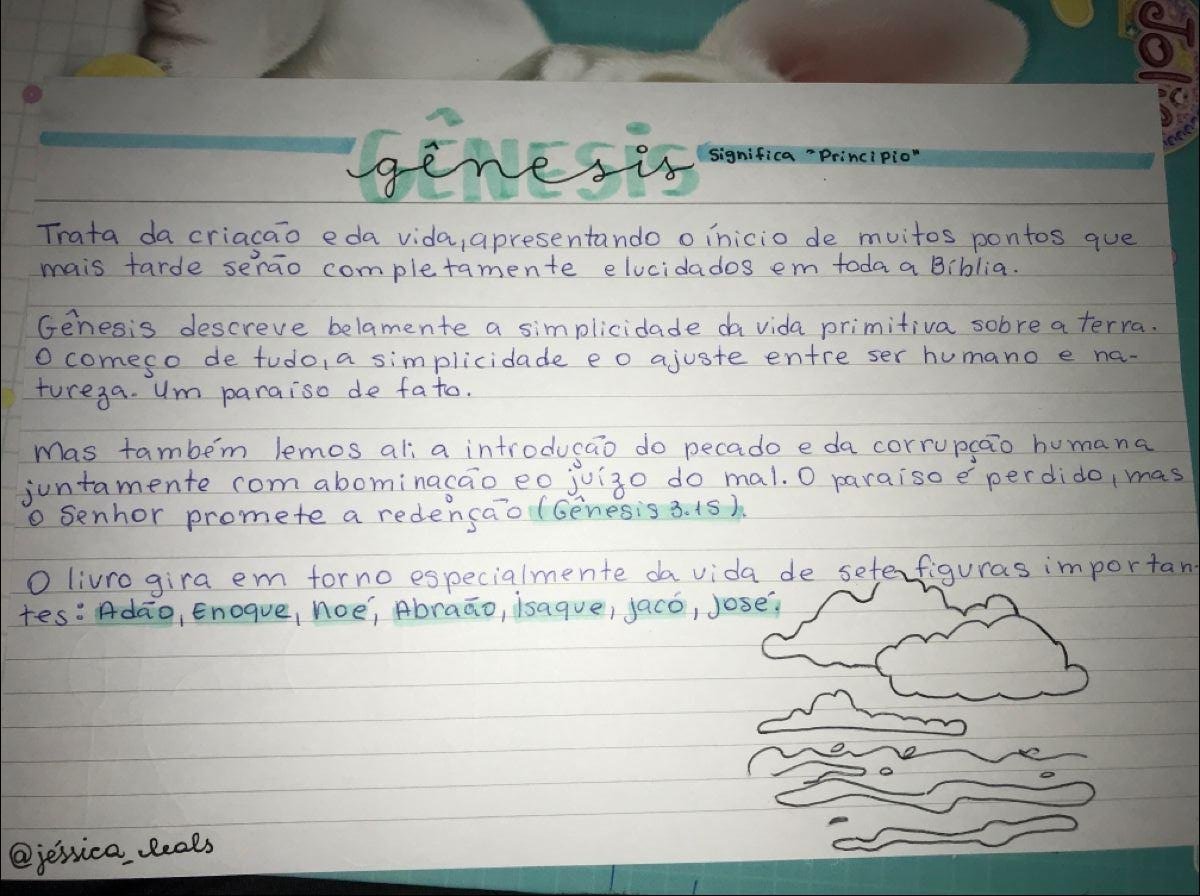 Jol
GÊNESIS
gênesis significa "Principio"
Trata da criação e da vida, apresentando o ínicio de muitos pontos que
mais tarde serão completamente elucidados em toda a Bíblia.
Gênesis descreve belamente a simplicidade da vida primitiva sobre a terra.
O começo de tudo, a simplicidade e o ajuste entre ser humano e na-
tureza. Um paraiso de fato.
Mas também lemos ali a introdução do pecado e da corrupção humana
juntamente com abominação e o juízo do mal. O paraiso é perdido, mas
o Senhor promete a redenção (Gênesis 3.15).
O livro gira em torno especialmente da vida de sete figuras importan-
tes: Adão, Enoque, Noé, Abraão, Isaque, Jacó, José.
@jéssica_leals